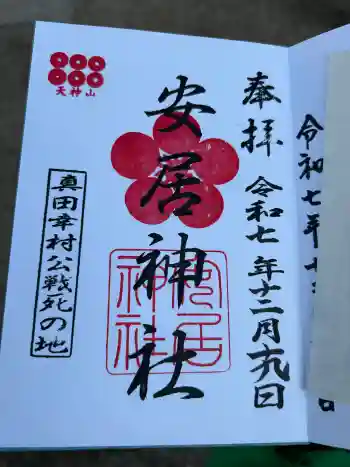 奉拝
令和七年十二月十九日
安居神社
安居神社
天神山
真田幸村公戦死の地
令和七年十